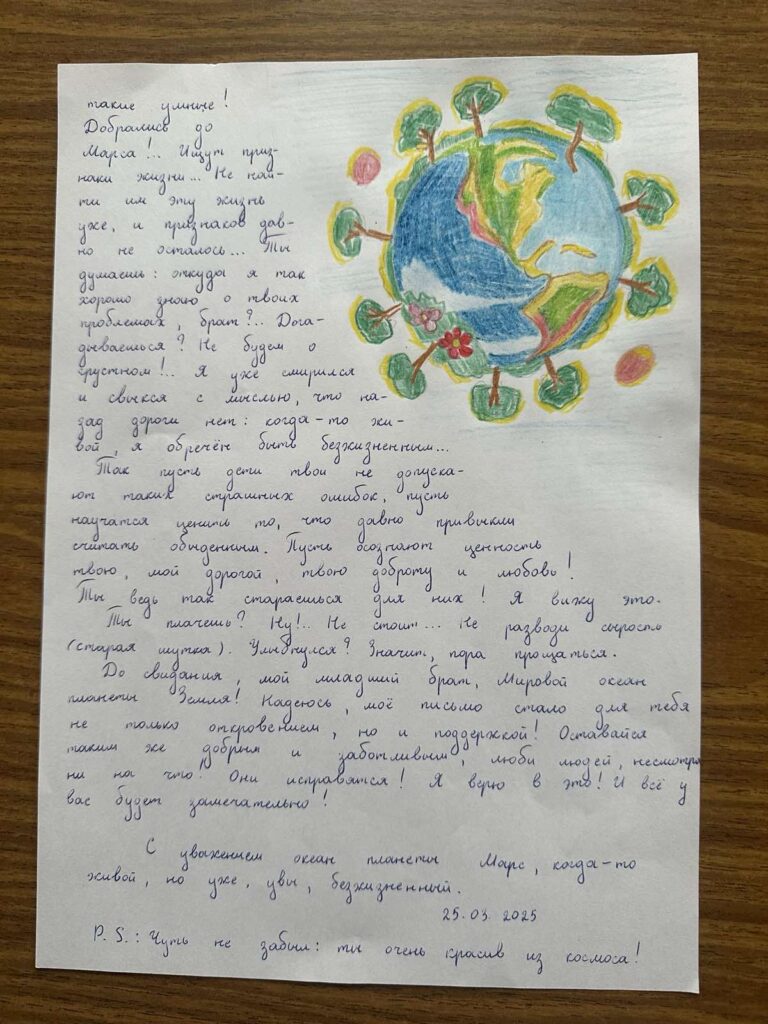 такие умные!
Добрались до
Марса!... Ищут приз-
наки жизни... Не най-
ти им эту жизнь
уже, и признаков дав-
но не осталось... Ты
думаешь: откуда я так
хорошо знаю о твоих
проблемах, брат?.. Дога-
дываешься? Не будем о
грустном!.. Я уже смирился
и свыкся с мыслью, что на-
зад дороги нет: когда-то жи-
вой, я обречён быть безжизненным...
Так пусть дети твои не допуска-
ют таких страшных ошибок, пусть
научатся ценить то, что давно привыкли
считать обыденным. Пусть осознают ценность
твою, мой дорогой, твою доброту и любовь!
Ты ведь так стараешься для них! Я вижу это.
Ты плачешь? Ну!.. Не стоит... Не разводи сырость
(старая шутка). Улыбнулся? Значит, пора прощаться.
До свидания, мой младший брат, Мировой океан
планеты Земля! Надеюсь, моё письмо стало для тебя
не только откровением, но и поддержкой! Оставайся
таким же добрым и заботливым, люби людей, несмотря
ни на что! Они исправятся! Я верю в это! И всё у
вас будет замечательно!
С уважением океан планеты Марс, когда-то
живой, но уже, увы, безжизненный.
25.03.2025
P.S.: Чуть не забыл: ты очень красив из космоса!